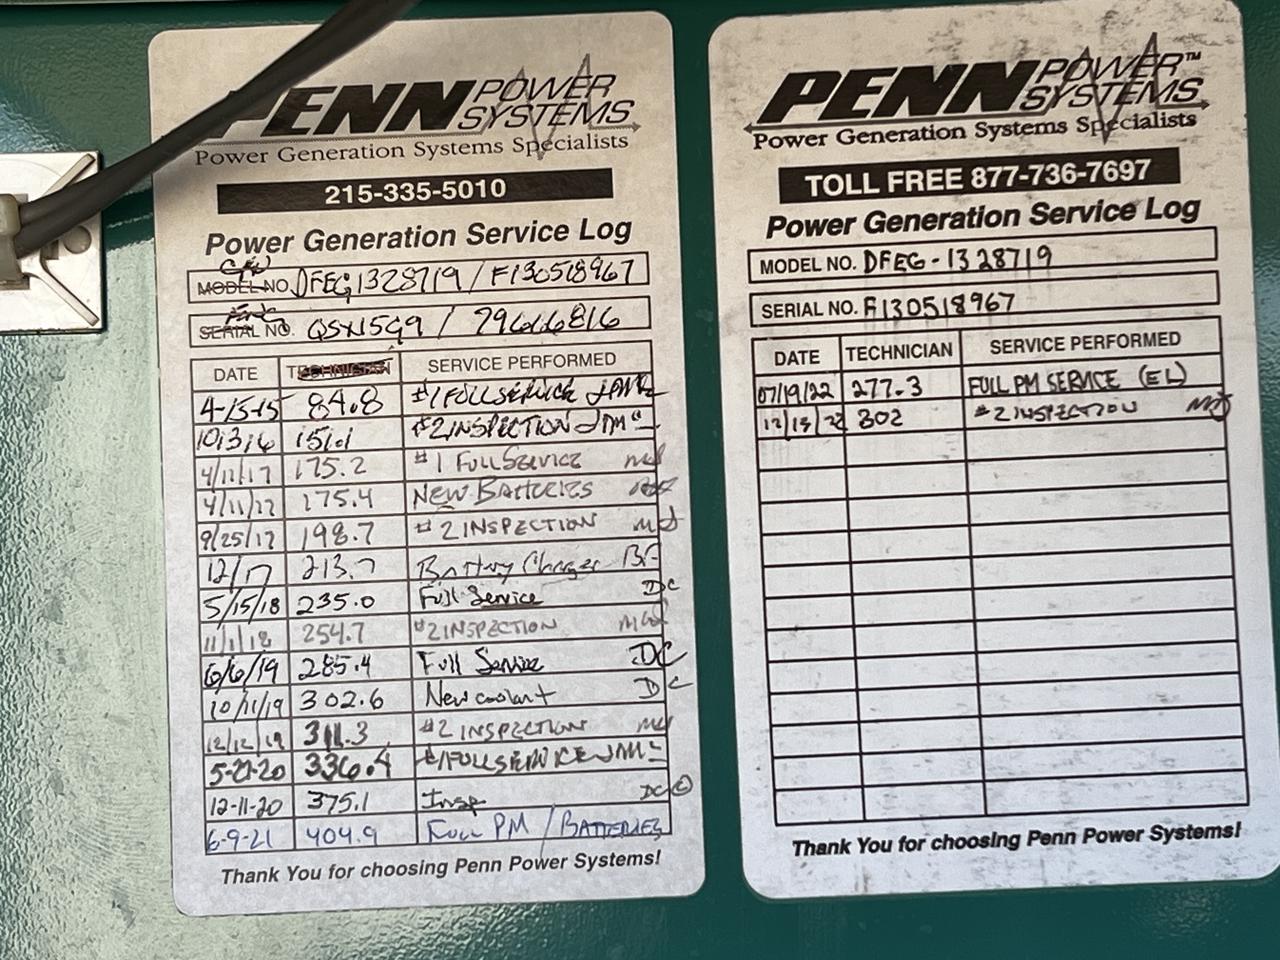 PENN POWER SYSTEMS
Power Generation Systems Specialists
215-335-5010
Power Generation Service Log
GEN
MODEL NO. DFEG1328719 / F130518967
ENG
SERIAL NO. QSX15G9 / 79616816
DATE TECHNICIAN SERVICE PERFORMED
4-15-15 84.8 #1 FULL SERVICE
10/3/16 151.1 #2 INSPECTION
4/11/17 175.2 #1 FULL SERVICE
4/11/17 175.4 NEW BATTERIES
9/25/17 198.7 #2 INSPECTION
12/17 213.7 Battery Charger BF
5/15/18 235.0 Full Service DC
11/1/18 254.7 #2 INSPECTION
6/6/19 285.4 Full Service DC
10/11/19 302.6 New coolant DC
12/12/19 311.3 #2 INSPECTION
5-27-20 336.4 #1 FULL SERVICE
12-11-20 375.1 Insp DC
6-9-21 404.9 FULL PM / BATTERIES
Thank You for choosing Penn Power Systems!
PENN POWER SYSTEMS™
Power Generation Systems Specialists
TOLL FREE 877-736-7697
Power Generation Service Log
MODEL NO. DFEG-1328719
SERIAL NO. F130518967
DATE TECHNICIAN SERVICE PERFORMED
07/19/22 277.3 FULL PM SERVICE (EL)
12/15/22 302 #2 INSPECTION
Thank You for choosing Penn Power Systems!